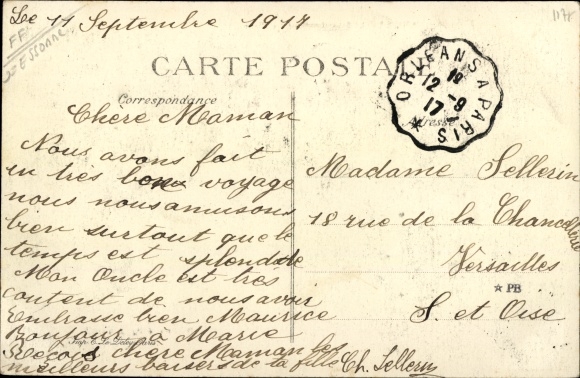 Le 11 Septembre 1917
117
FF
Essonne
CARTE POSTALE
Correspondance
Adresse
ORLEANS A PARIS
18
12 -9
17
Chere Maman
Nous avons fait
un tres bon voyage
nous nous amusons
bien surtout que le
temps est splendide
Mon Oncle est tres
content de nous avoir
Embrasse bien Maurice
Bonjour à Marie
Reçois chere Maman les
meilleurs baisers de ta fille
Ch. Sellerin
Madame Sellerin
18 rue de la Chancellerie
Versailles
PB
S. et Oise